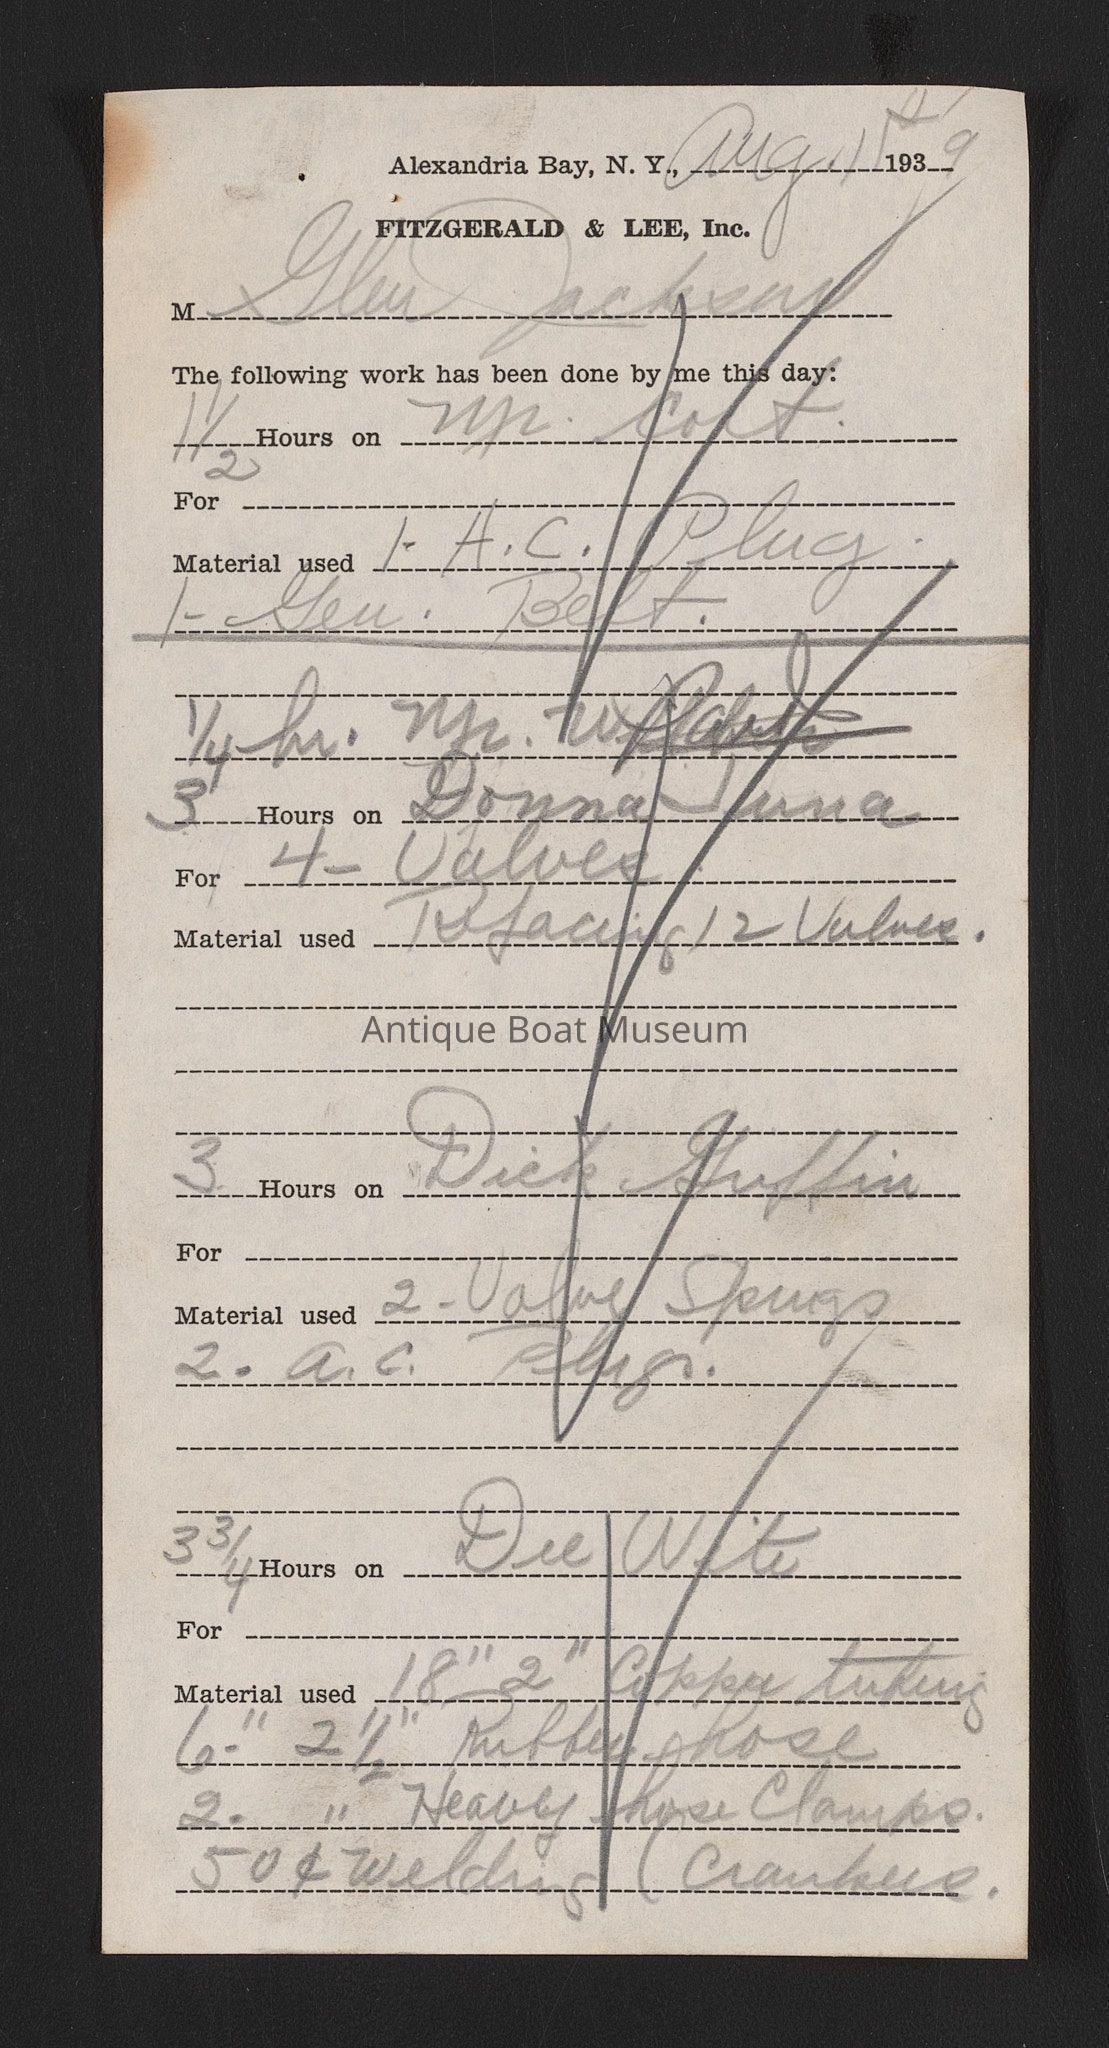 Alexandria Bay, N. Y., Aug. 11th 1939
FITZGERALD & LEE, Inc.
M Glen Jackson
The following work has been done by me this day:
1 1/2 Hours on Mr. Colt.
For
Material used 1- A.C. Plug.
1- Gen. Belt.
1/4 hr. Mr.
3 Hours on Donna Luna
For 4- Valves
Material used Refacing 12 Valves.
Antique Boat Museum
3 Hours on Dick Griffin
For
Material used 2- Valve Springs
2. A.C. Plugs.
3 3/4 Hours on Dee Wite
For
Material used 18" 2" Copper tubing
6-" 2 1/2" Rubber hose
2. " Heavy hose Clamps.
50¢ Welding (